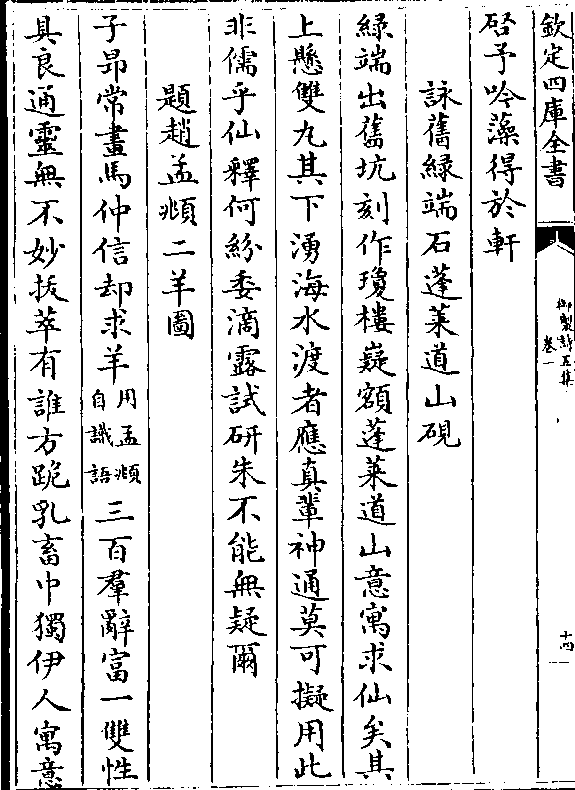 欽定四庫全書
御製詩五集
卷一
十四
啓予吟藻得於軒
詠舊緑端石蓬萊道山硯
緑端出舊坑刻作瓊樓嶷額蓬萊道山意寓求仙矣其
上懸雙丸其下湧海水渡者應真輩神通莫可擬用此
非儒乎仙釋何紛委滴露試研朱不能無疑爾
題趙孟頫二羊圖
子昻常畫馬仲信却求羊用孟頫自識語三百羣辭富一雙性
具良通靈無不妙拔萃有誰方跪乳畜中獨伊人寓意